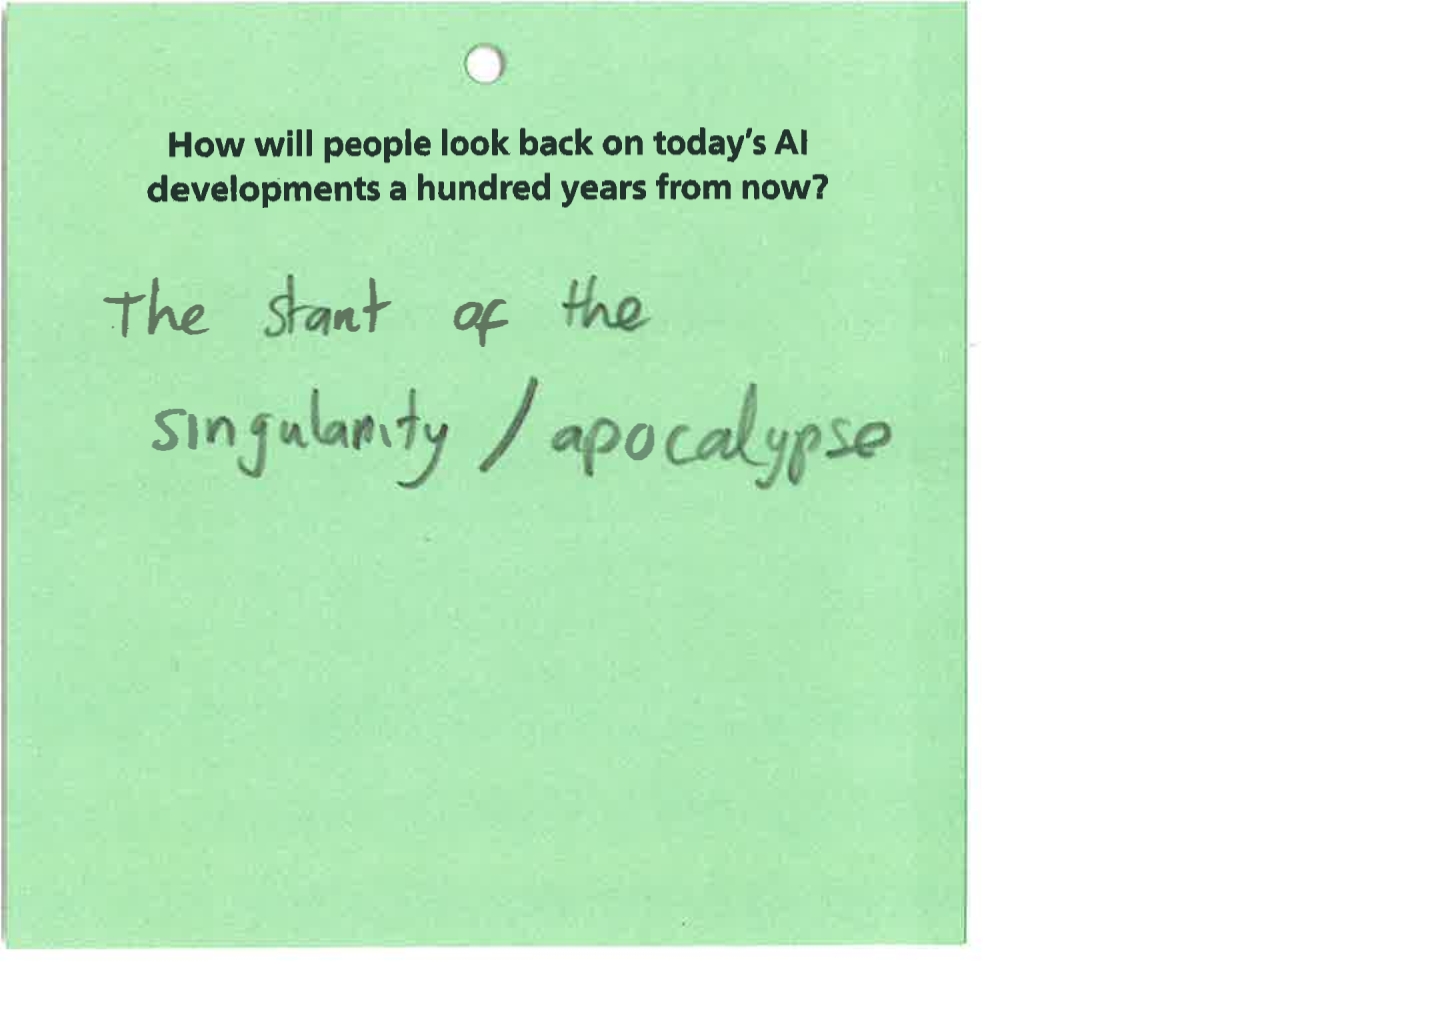 How will people look back on today's AI
developments a hundred years from now?
The start of the
singularity / apocalypse